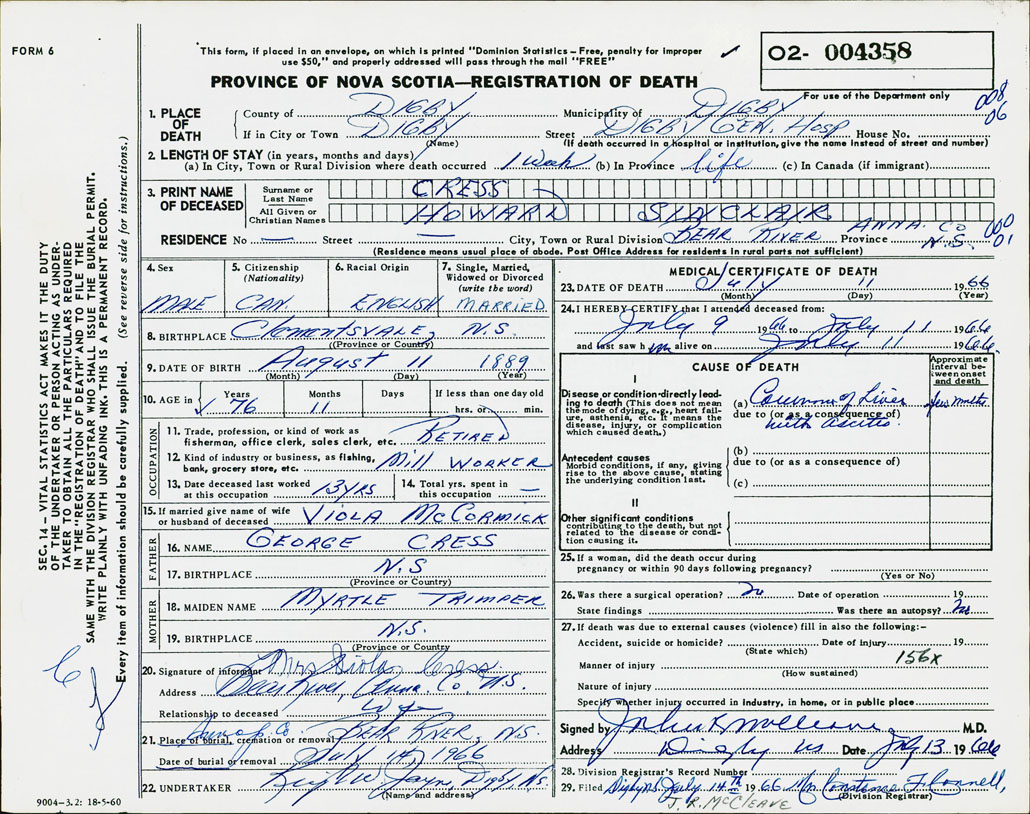 FORM 6
This form, if placed in an envelope, on which is printed "Dominion Statistics – Free, penalty for improper
use $50," and properly addressed will pass through the mail "FREE"
02- 004358
PROVINCE OF NOVA SCOTIA—REGISTRATION OF DEATH
For use of the Department only
008
06
1. PLACE OF DEATH
County of DIGBY Municipality of DIGBY
If in City or Town DIGBY Street DIGBY GEN. HOSP House No.
(Name) (If death occurred in a hospital or institution, give the name instead of street and number)
2. LENGTH OF STAY (in years, months and days)
(a) In City, Town or Rural Division where death occurred 1 week (b) In Province life (c) In Canada (if immigrant)
3. PRINT NAME OF DECEASED
Surname or Last Name CRESS
All Given or Christian Names HOWARD SINCLAIR
RESIDENCE No — Street — City, Town or Rural Division BEAR RIVER ANNA. CO Province N.S.
000
01
(Residence means usual place of abode. Post Office Address for residents in rural parts not sufficient)
4. Sex MALE
5. Citizenship (Nationality) CAN.
6. Racial Origin ENGLISH
7. Single, Married, Widowed or Divorced (write the word) MARRIED
8. BIRTHPLACE Clementsvale, N.S.
(Province or Country)
9. DATE OF BIRTH August 11 1889
(Month) (Day) (Year)
10. AGE in Years 76 Months 11 Days If less than one day old hrs. or min.
OCCUPATION
11. Trade, profession, or kind of work as fisherman, office clerk, sales clerk, etc. RETIRED
12. Kind of industry or business, as fishing, bank, grocery store, etc. MILL WORKER
13. Date deceased last worked at this occupation 13 YRS
14. Total yrs. spent in this occupation —
15. If married give name of wife or husband of deceased VIOLA McCORMICK
FATHER
16. NAME GEORGE CRESS
17. BIRTHPLACE N.S
(Province or Country)
MOTHER
18. MAIDEN NAME MYRTLE TRIMPER
19. BIRTHPLACE N.S.
(Province or Country
20. Signature of informant Mrs Viola Cress
Address Bear River, Anna. Co. N.S.
Relationship to deceased Wife
21. Place of burial, cremation or removal Annap. Co. BEAR RIVER, N.S.
Date of burial or removal July 14, 1966
22. UNDERTAKER Jayne, Digby, N.S.
(Name and address)
9004–3.2: 18-5-60
MEDICAL CERTIFICATE OF DEATH
23. DATE OF DEATH July 11 1966
(Month) (Day) (Year)
24. I HEREBY CERTIFY that I attended deceased from:
July 9 1966 to July 11 1966
and last saw him alive on July 11 1966
CAUSE OF DEATH
Approximate interval between onset and death
I
Disease or condition directly leading to death (This does not mean the mode of dying, e.g., heart failure, asthenia, etc. It means the disease, injury, or complication which caused death.)
(a) Carcinoma of Liver
due to (or as a consequence of)
with Ascites.
few months
Antecedent causes
Morbid conditions, if any, giving rise to the above cause, stating the underlying condition last.
(b)
due to (or as a consequence of)
(c)
II
Other significant conditions
contributing to the death, but not related to the disease or condition causing it.
25. If a woman, did the death occur during pregnancy or within 90 days following pregnancy?
(Yes or No)
26. Was there a surgical operation? no Date of operation 19
State findings Was there an autopsy? no
27. If death was due to external causes (violence) fill in also the following:–
Accident, suicide or homicide? Date of injury 19
(State which)
Manner of injury 156x
(How sustained)
Nature of injury
Specify whether injury occurred in industry, in home, or in public place
Signed by John R McCleave M.D.
Address Digby NS Date July 13 1966
28. Division Registrar's Record Number
29. Filed Digby N.S. July 14th 1966 Mrs Constance
(Division Registrar)
J. R. McCLEAVE
SEC. 14 – VITAL STATISTICS ACT MAKES IT THE DUTY
OF THE UNDERTAKER OR PERSON ACTING AS UNDER-
TAKER TO OBTAIN ALL THE PARTICULARS REQUIRED
IN THE "REGISTRATION OF DEATH" AND TO FILE THE
SAME WITH THE DIVISION REGISTRAR WHO SHALL ISSUE THE BURIAL PERMIT.
WRITE PLAINLY WITH UNFADING INK. THIS IS A PERMANENT RECORD.
Every item of information should be carefully supplied. (See reverse side for instructions.)